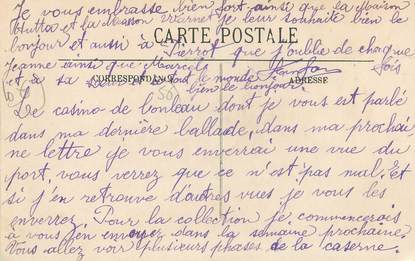 Je vous embrasse bien fort ainsi que la Maison
Hutta et la Maison Warnet je leur souhaite bien le
bonjour et aussi à Pierrot que j'oublie de chaque
CARTE POSTALE
fois
Jeanne ainsi que Marcel
et à sa tout le monde
bien le bonjour.
CORRESPONDANCE
ADRESSE
Le casino de bonleau dont je vous est parlé
dans ma dernière ballade, dans ma prochai
ne lettre je vous enverrai une vue du
port, vous verrez que ce n'est pas mal. Et
si j'en retrouve d'autres vues je vous les
enverrez. Pour la collection je commencerais
à vous en envoyez dans la semaine prochaine
Vous allez voir plusieurs phases de la caserne.